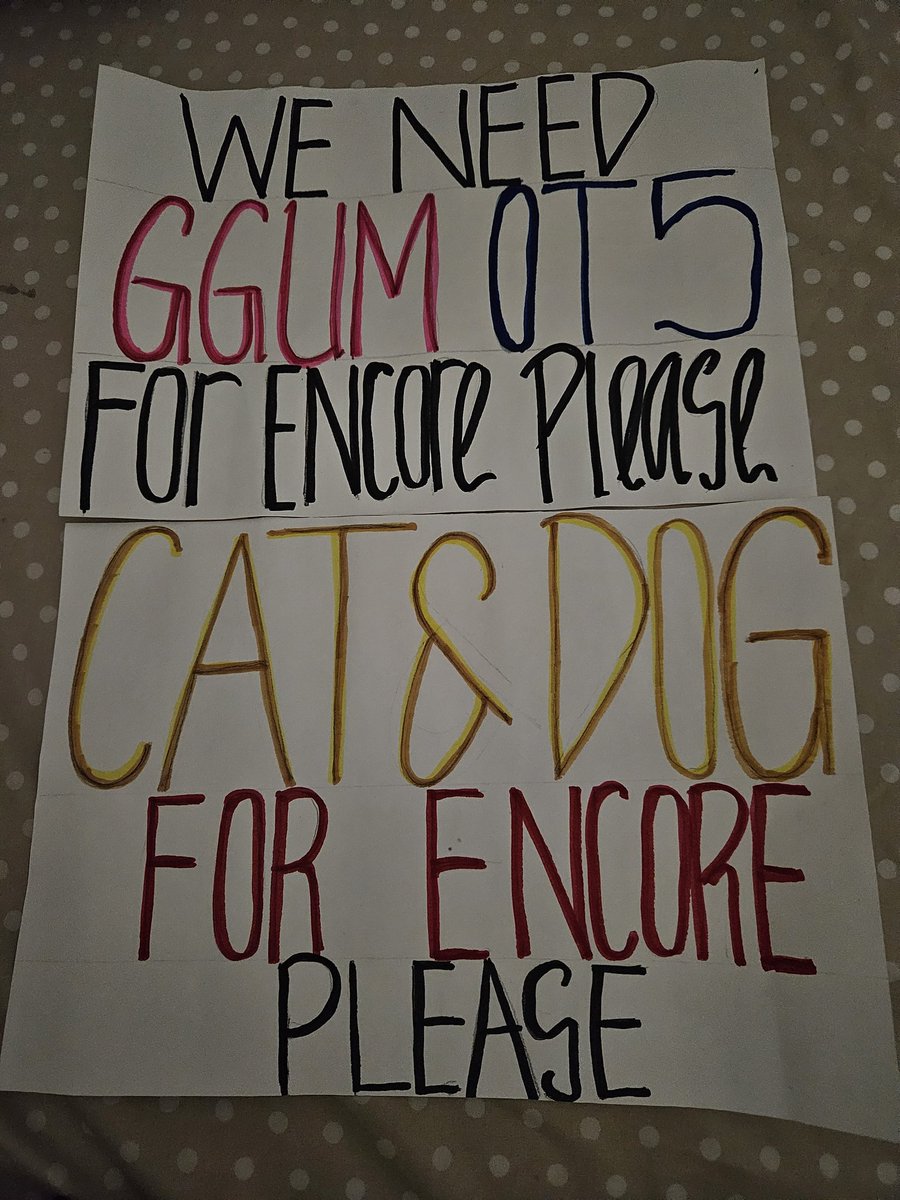 WE NEED
GGUM OT5
For ENCore Please
CAT & DOG
FOR ENCORE
PLEASE